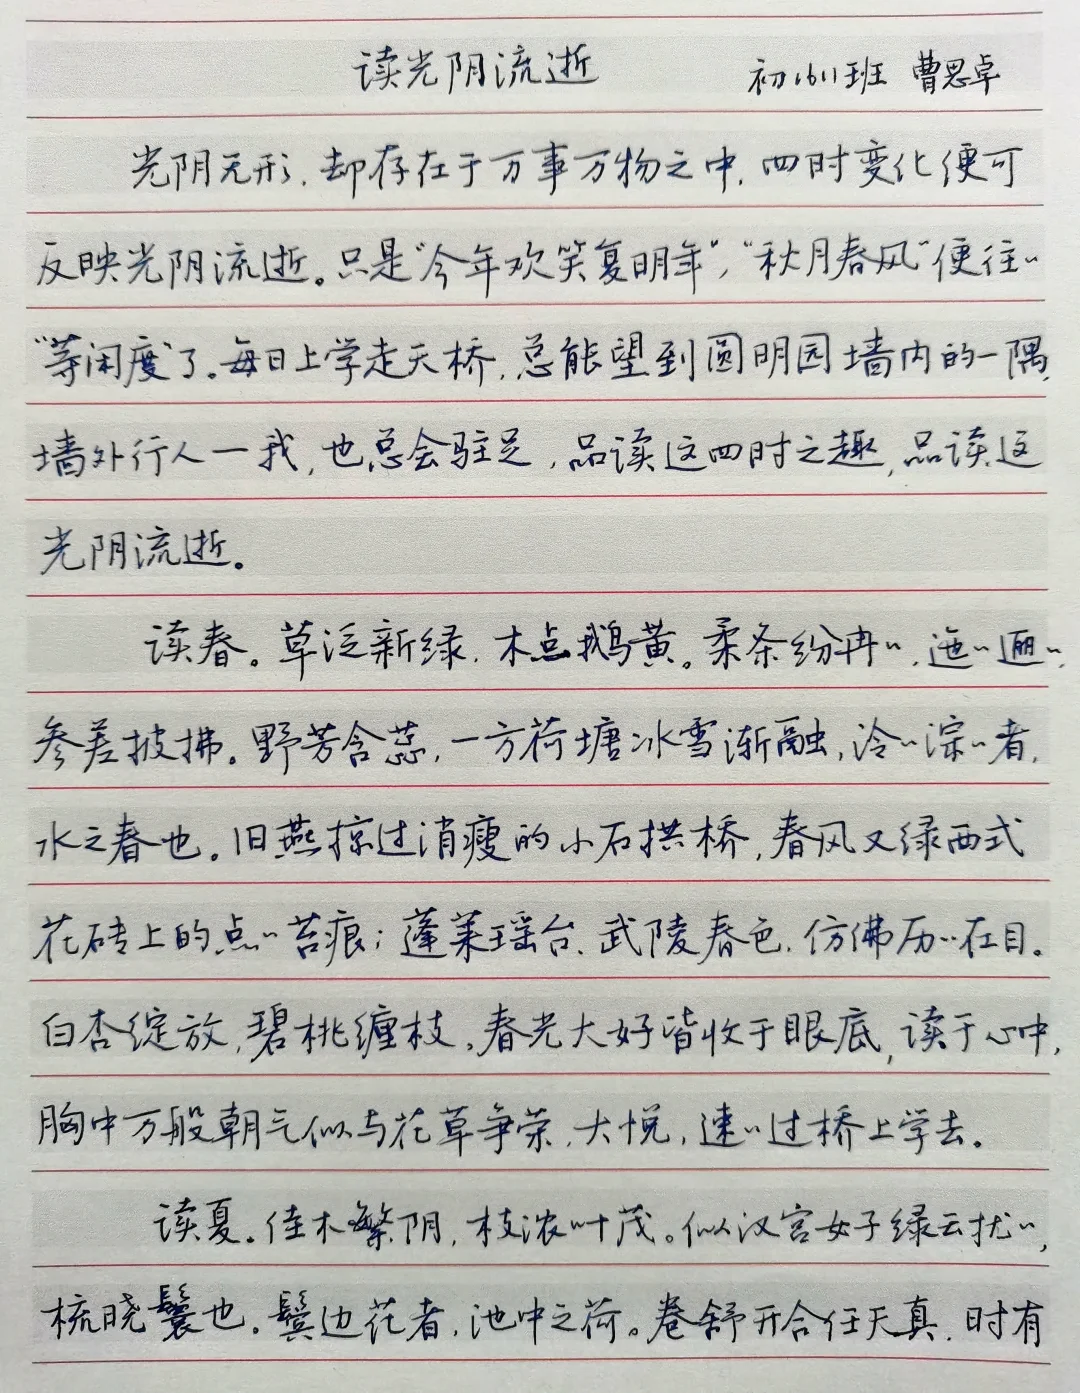 读光阴流逝 初1611班 曹思卓
光阴无形,却存在于万事万物之中,四时变化便可
反映光阴流逝。只是“今年欢笑复明年”,“秋月春风”便往〃
“等闲度”了。每日上学走天桥,总能望到圆明园墙内的一隅,
墙外行人一我,也总会驻足,品读这四时之趣,品读这
光阴流逝。
读春。草泛新绿,木点鹅黄。柔条纷冉〃,迤〃逦〃,
参差披拂。野芳含蕊,一方荷塘冰雪渐融,泠〃淙〃者,
水之春也。旧燕掠过消瘦的小石拱桥,春风又绿西式
花砖上的点〃苔痕;蓬莱瑶台,武陵春色,仿佛历〃在目。
白杏绽放,碧桃缠枝,春光大好皆收于眼底,读于心中,
胸中万般朝气似与花草争荣,大悦,速〃过桥上学去。
读夏。佳木繁阴,枝浓叶茂。似汉宫女子绿云扰〃,
梳晓鬟也。鬓边花者,池中之荷。卷舒开合任天真,时有